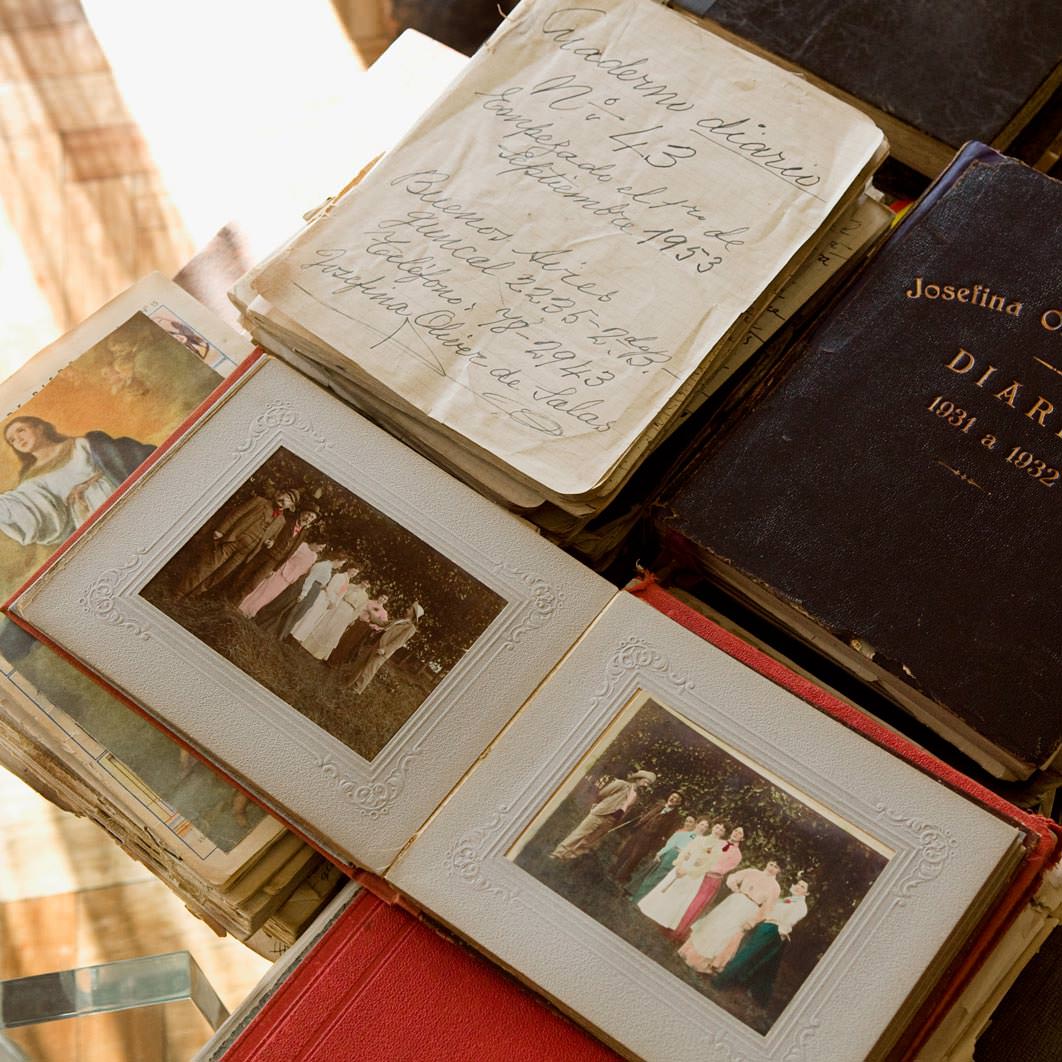 Cuaderno diario
Nº 43
Empesado el 1ro de
Septiembre 1953
Buenos Aires
Juncal 2235-2do B.-
Teléfono: 78-2943
Josefina Oliver de Salas
Josefina O
DIAR
1931 a 1932